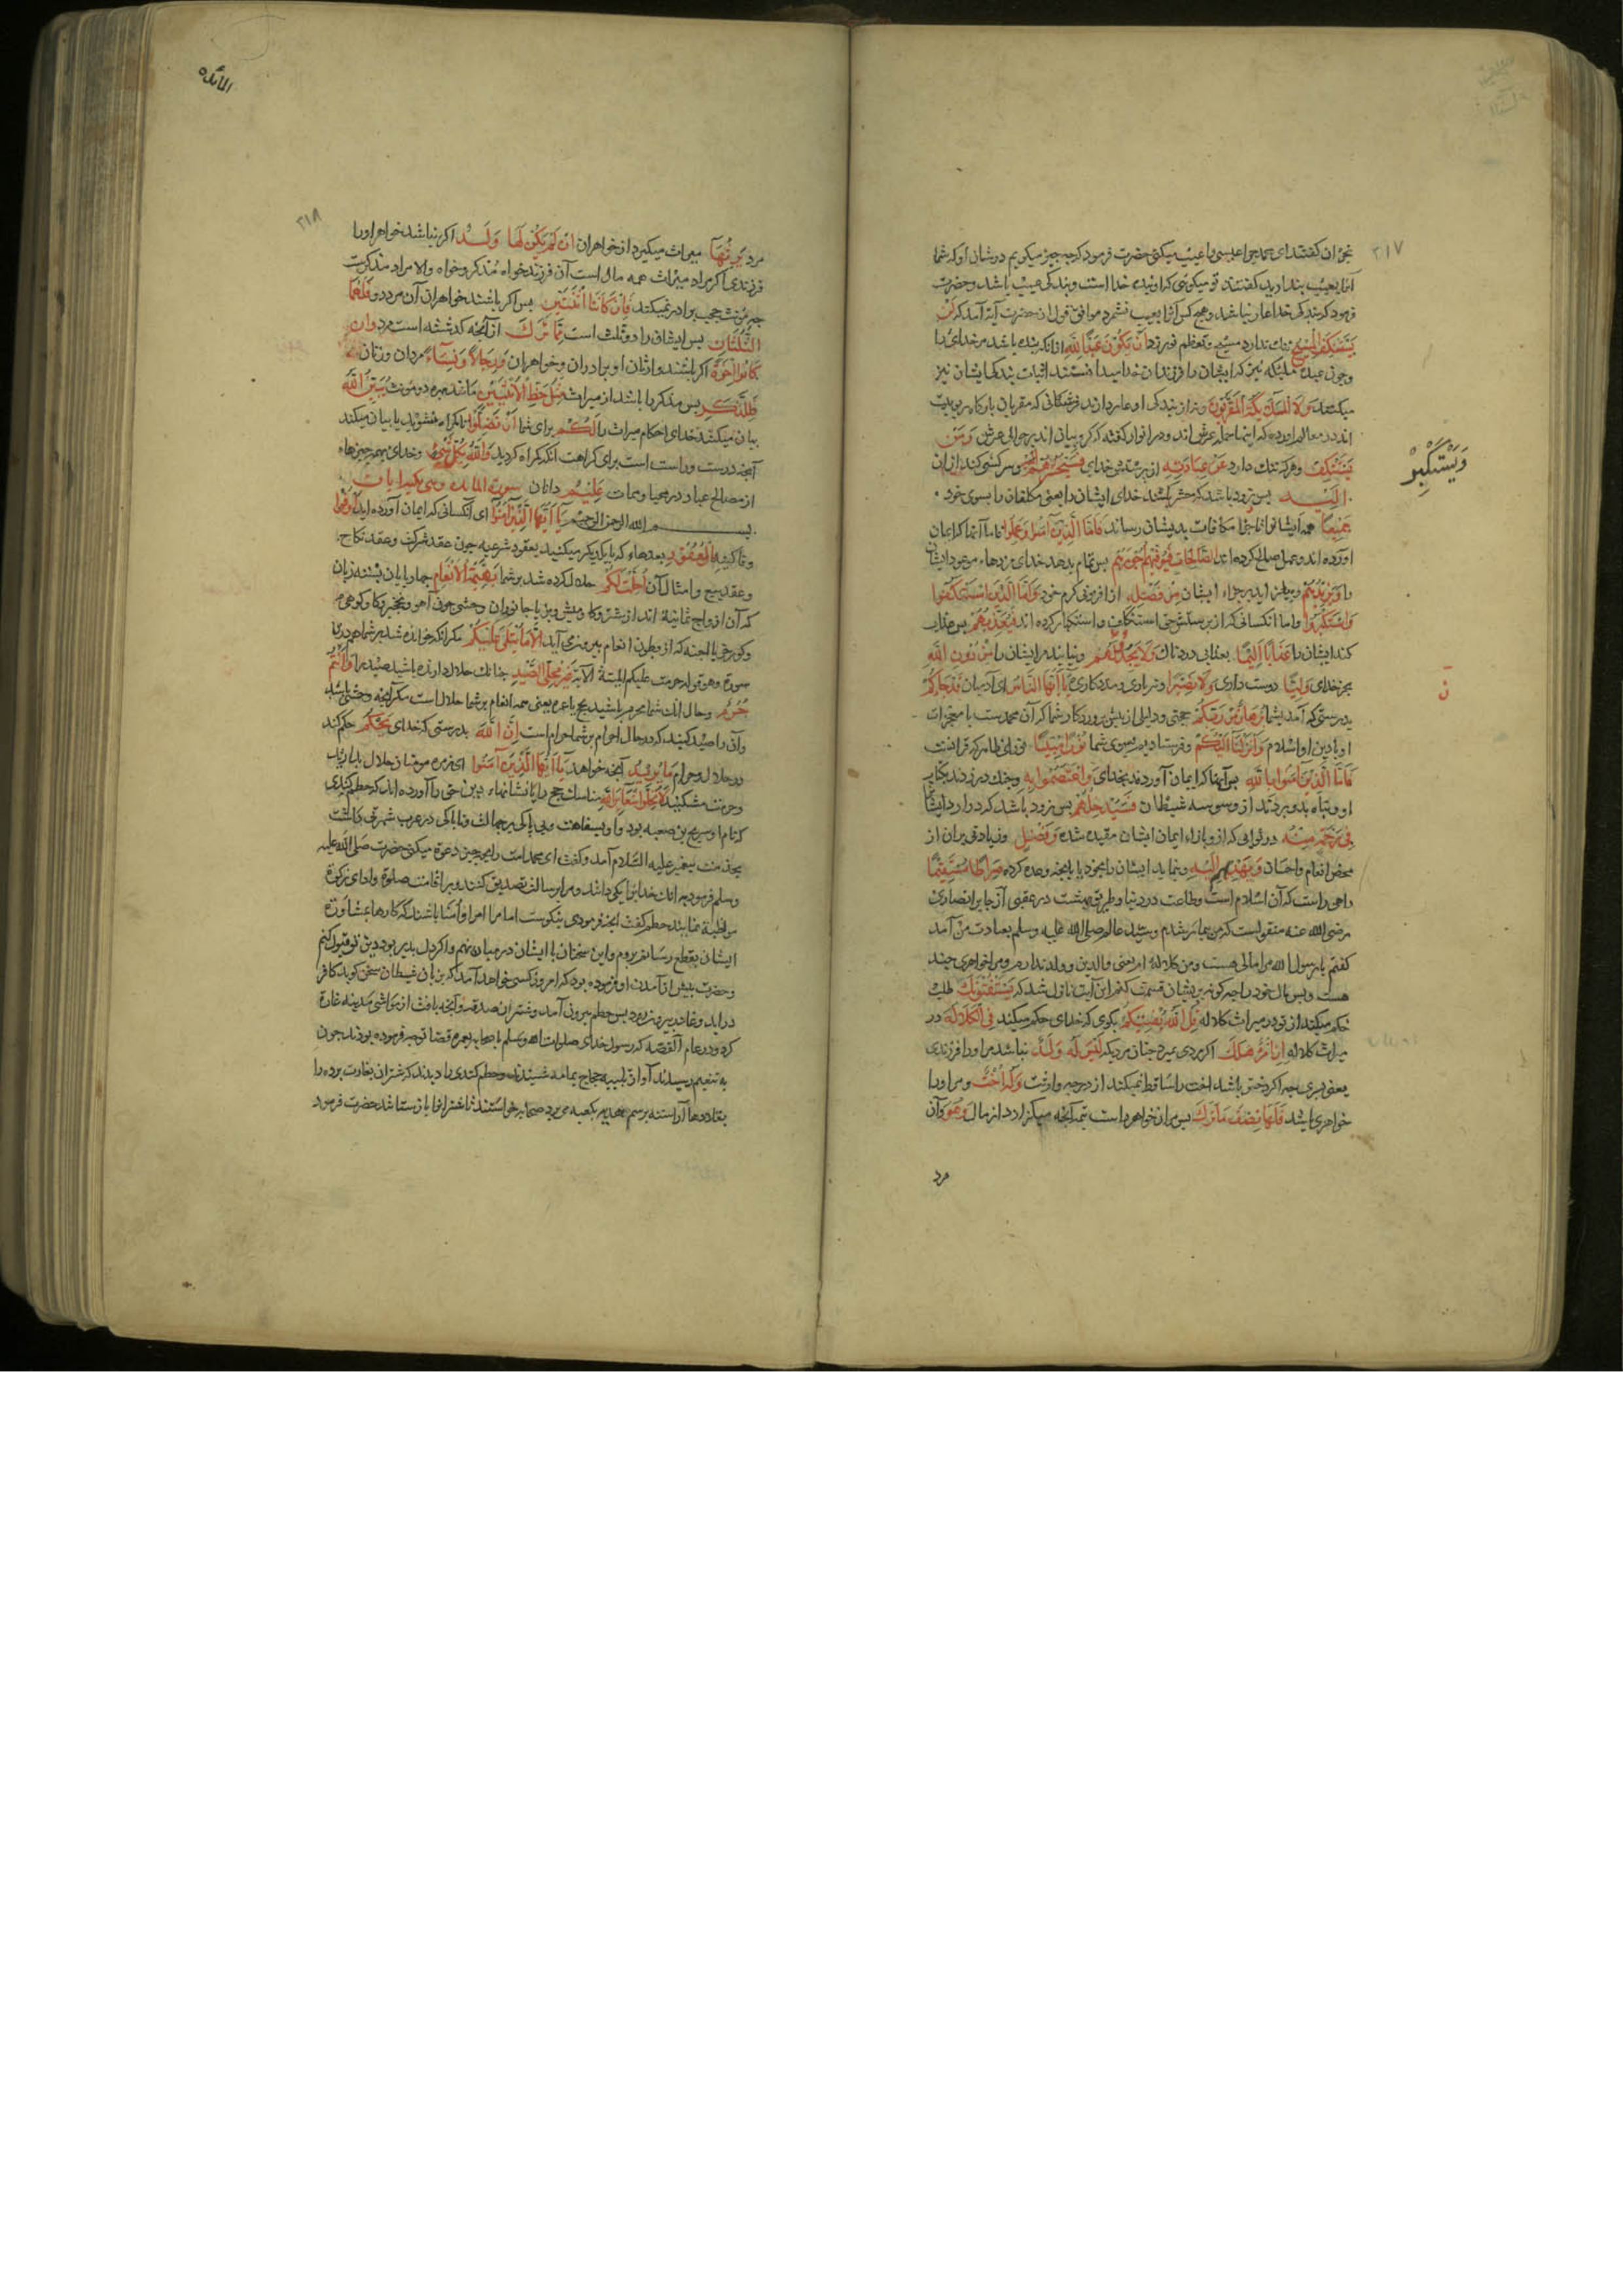 ٣١٧
نجران گفتند ای محمد چرا عیسی را عیب میکنی حضرت فرمود که چه چیز میگویم در شان او که شما
آنرا بعیب بندارید گفتند تو میکوی که او بنده خدا است و بندکی عیب باشد و حضرت
فرمود که بندکی خدا عار نباشد و هیچ کس آنرا بعیب نشمرد موافق قول ان حضرت آیة آمد که لَنْ
یَسْتَنْکِفَ الْمَسِیحُ ننک ندارد مسیح و تعظم نورزد اَنْ یَکُوْنَ عَبْدًا لِلّٰهِ ازانکه بنده باشد مر خدای را
و چون عبده ملئکه نیز که ایشان را فرزندان خدا میدانستند اثبات بندکی ایشان نیز
میکند وَلَا الْمَلٰئِکَةُ الْمُقَرَّبُوْنَ و نه از بندکی او عار دارند فرشتکانی که مقربان بارکاه ربوبیت
اند در معالم اورده که اینها حملهٔ عرش اند و در انوار کفته که کروبیان اند بر حوالی عرش وَمَنْ
یَسْتَنْکِفْ و هر که ننک دارد عَنْ عِبَادَتِهِ از پرستش خدای فَسَیَحْشُرُهُمْ و سرکشی کند از ان
وَیَسْتَکْبِرْ
اِلَیْهِ پس زود باشد که حشر کند خدای ایشان را یعنی مکلفان را بسوی خود
جَمِیْعًا همه ایشانرا تا جزا و مکافات بدیشان رساند فَاَمَّا الَّذِیْنَ آمَنُوا وَعَمِلُوا فاما آنها که ایمان
اورده اند و عمل صالح کرده اند الصَّالِحَاتِ فَیُوَفِّیْهِمْ اُجُوْرَهُمْ پس تمام بدهد خدای مزدهاء موعود ایشان
را وَیَزِیْدُهُمْ و بیفزاید بر جزاء ایشان مِنْ فَضْلِهِ از افزونی کرم خود وَاَمَّا الَّذِیْنَ اسْتَنْکَفُوا
وَاسْتَکْبَرُوا و اما انکسانی که از پرستش حق استنکاف و استکبار کرده اند فَیُعَذِّبُهُمْ پس عذاب
کند ایشان را عَذَابًا اَلِیْمًا بعذابی دردناک وَلَا یَجِدُوْنَ لَهُمْ و نیابند مر ایشان را مِنْ دُوْنِ اللّٰهِ
بجز خدای وَلِیًّا دوست داری وَلَا نَصِیْرًا و نه یاری و مددکاری یَا اَیُّهَا النَّاسُ ای آدمیان قَدْ جَاءَکُمْ
بدرستی که آمد بشما بُرْهَانٌ مِنْ رَبِّکُمْ حجتی و دلیلی از پیش پروردکار شما که آن محمدست با معجزات
او یا دین او اسلام وَاَنْزَلْنَا اِلَیْکُمْ و فرستادیم بسوی شما نُوْرًا مُبِیْنًا نوری ظاهر که قرانست
فَاَمَّا الَّذِیْنَ آمَنُوا بِاللّٰهِ پس آنها که ایمان آوردند بخدای وَاعْتَصَمُوا بِهِ و چنک در زدند بکتاب
او و پناه بدو بردند از وسوسه شیطان فَسَیُدْخِلُهُمْ پس زود باشد که در آرد ایشانرا
فِی رَحْمَةٍ مِنْهُ در ثوابی که از و بازاء ایمان ایشان مقید شده وَفَضْلٍ و زیادتی بران از
محض انعام و احسان وَیَهْدِیْهِمْ اِلَیْهِ و بنماید ایشان را بخود یا بانچه وعده کرده صِرَاطًا مُسْتَقِیْمًا
راهی راست که آن اسلام است و طاعت در دنیا و طریق بهشت در عقبی از جابر انصاری
رضی الله عنه منقولست که من بیمار شدم و سید عالم صلی الله علیه و سلم بعیادت من آمد
کفتم یا رسول الله مرا مالی هست و من کلاله ام یعنی والدین و ولد ندارم و مرا خواهری چند
هست و پس مال خود را چه کونه بریشان قسمت کنم این آیت نازل شد که یَسْتَفْتُوْنَکَ طلب
حکم میکنند از تو در میراث کلاله قُلِ اللّٰهُ یُفْتِیْکُمْ بکوی که خدای حکم میکند فِی الْکَلَالَةِ در
میراث کلاله اِنِ امْرُؤٌ هَلَکَ اکر مردی بمیرد چنان مردیکه لَیْسَ لَهُ وَلَدٌ نباشد مر او را فرزندی
یعنی پسری چه اکر دختر باشد اخت را ساقط نمیکند از درجه وراثت وَلَهُ اُخْتٌ و مر او را
خواهری باشد فَلَهَا نِصْفُ مَا تَرَکَ پس مران خواهر راست نیمه آنچه میکزارد از مال وَهُوَ و آن
مرد
المائده
٣١٨
مرد یَرِثُهَا میراث میکیرد از خواهران اِنْ لَمْ یَکُنْ لَهَا وَلَدٌ اکر نباشد خواهر او را
فرزندی اکر مراد میراث همه مال است آن فرزند خواه مذکر و خواه والا مراد مذکرست
چه مونث حجب برادر نمیکند فَاِنْ کَانَتَا اثْنَتَیْنِ پس اکر باشند خواهران آن مرد دو فَلَهُمَا
الثُّلُثَانِ پس ایشان را دو ثلث است مِمَّا تَرَکَ از آنچه کذشته است مرد وَاِنْ
کَانُوا اِخْوَةً اکر باشند وارثان او برادران و خواهران رِجَالًا وَنِسَاءً مردان و زنان
فَلِلذَّکَرِ پس مذکر را باشد از میراث مِثْلُ حَظِّ الْاُنْثَیَیْنِ مانند بهره دو مونث یُبَیِّنُ اللّٰهُ
بیان میکند خدای احکام میراث را لَکُمْ برای شما اَنْ تَضِلُّوا تا کمراه نشوید یا بیان میکند
آنچه درست و راست است برای کراهت آنکه کمراه کردید وَاللّٰهُ بِکُلِّ شَیْءٍ و خدای بهمه چیزها
از مصالح عباد در محیا و ممات عَلِیْمٌ دانان سورة المائده
بسم الله الرحمن الرحیم یَا اَیُّهَا الَّذِیْنَ آمَنُوا ای آنکسانی که ایمان آورده اید اَوْفُوا
وفا کنید بِالْعُقُوْدِ بعهدهاء که با یکدیکر میکنید یعقود شرعیه چون عقد شرکت و عقد نکاح
و عقد بیع و امثال آن اُحِلَّتْ لَکُمْ حلال کرده شد بر شما بَهِیْمَةُ الْاَنْعَامِ چهار پایان بسته زبان
که آن ازواج ثمانیة اند از شتر و کاو و میش و بز یا جانوران وحشی چون آهو و نخجیر و کاو کوهی
و کور خر یا اجنه که از بطون انعام بیرون می آید اِلَّا مَا یُتْلٰی عَلَیْکُمْ مکر آنکه خوانده شد بر شما هم درین
سوره و هو قوله حرمت علیکم المیتة الآیة غَیْرَ مُحِلِّی الصَّیْدِ چنانک حلال دارنده باشید صید را وَاَنْتُمْ
حُرُمٌ و حال انک شما محرم باشید بحج یا عمره یعنی همه انعام بر شما حلال است مکر آنچه وحشی باشد
و آن را صید کنید که در حال احرام بر شما حرام است اِنَّ اللّٰهَ بدرستی که خدای یَحْکُمُ حکم کند
در حلال و حرام مَا یُرِیْدُ آنچه خواهد یَا اَیُّهَا الَّذِیْنَ آمَنُوا ای زمره مومنان حلال بدارید
و حرمت مشکنید لَا تُحِلُّوا شَعَائِرَ اللّٰهِ مناسک حج را یا نشانهاء دین حق را آورده اند که حطم کندی
که نام او شریح بن ضبیعه بود
پیغمبر علیه السلام آمد و کفت ای محمد امت را بچه چیز دعوة میکنی حضرت صلی الله علیه
وسلم فرمود به انک خدایرا یکی دانند و مرا برسالت تصدیق کنند و بر اقامت صلوة و ادای زکوة
مواظبة نمایند حطم کفت آنچه فرمودی نیکوست اما مرا امرا و امنا باشند که کارها بمشاورة
ایشان بقطع رسانم بروم و این سخنان با ایشان در میان نهم و اکر دل پذیر بود دین تو قبول کنم
و حضرت پیش از آمدن او فرموده بود که امروز کسی خواهد آمد که بزبان شیطان سخن کوید کافر
در آید و غادر بیرون رود پس حطم بیرون آمد و شتران صدقه و آنچه یافت از مواشی مدینه غارة
کرد و در عام القضه که رسول خدای صلوات الله وسلم با صحابه بعمره قضا توجه فرموده بودند چون
به تنعیم رسیدند آواز تلبیه حجاج یمامه شنیدند و حطم کندی را دیدند که شتران بغارت برده را
بقلادها آراسته برسم هدیه بکعبه می برد صحابه خواستند تا شترانرا باز ستانند حضرت فرمود